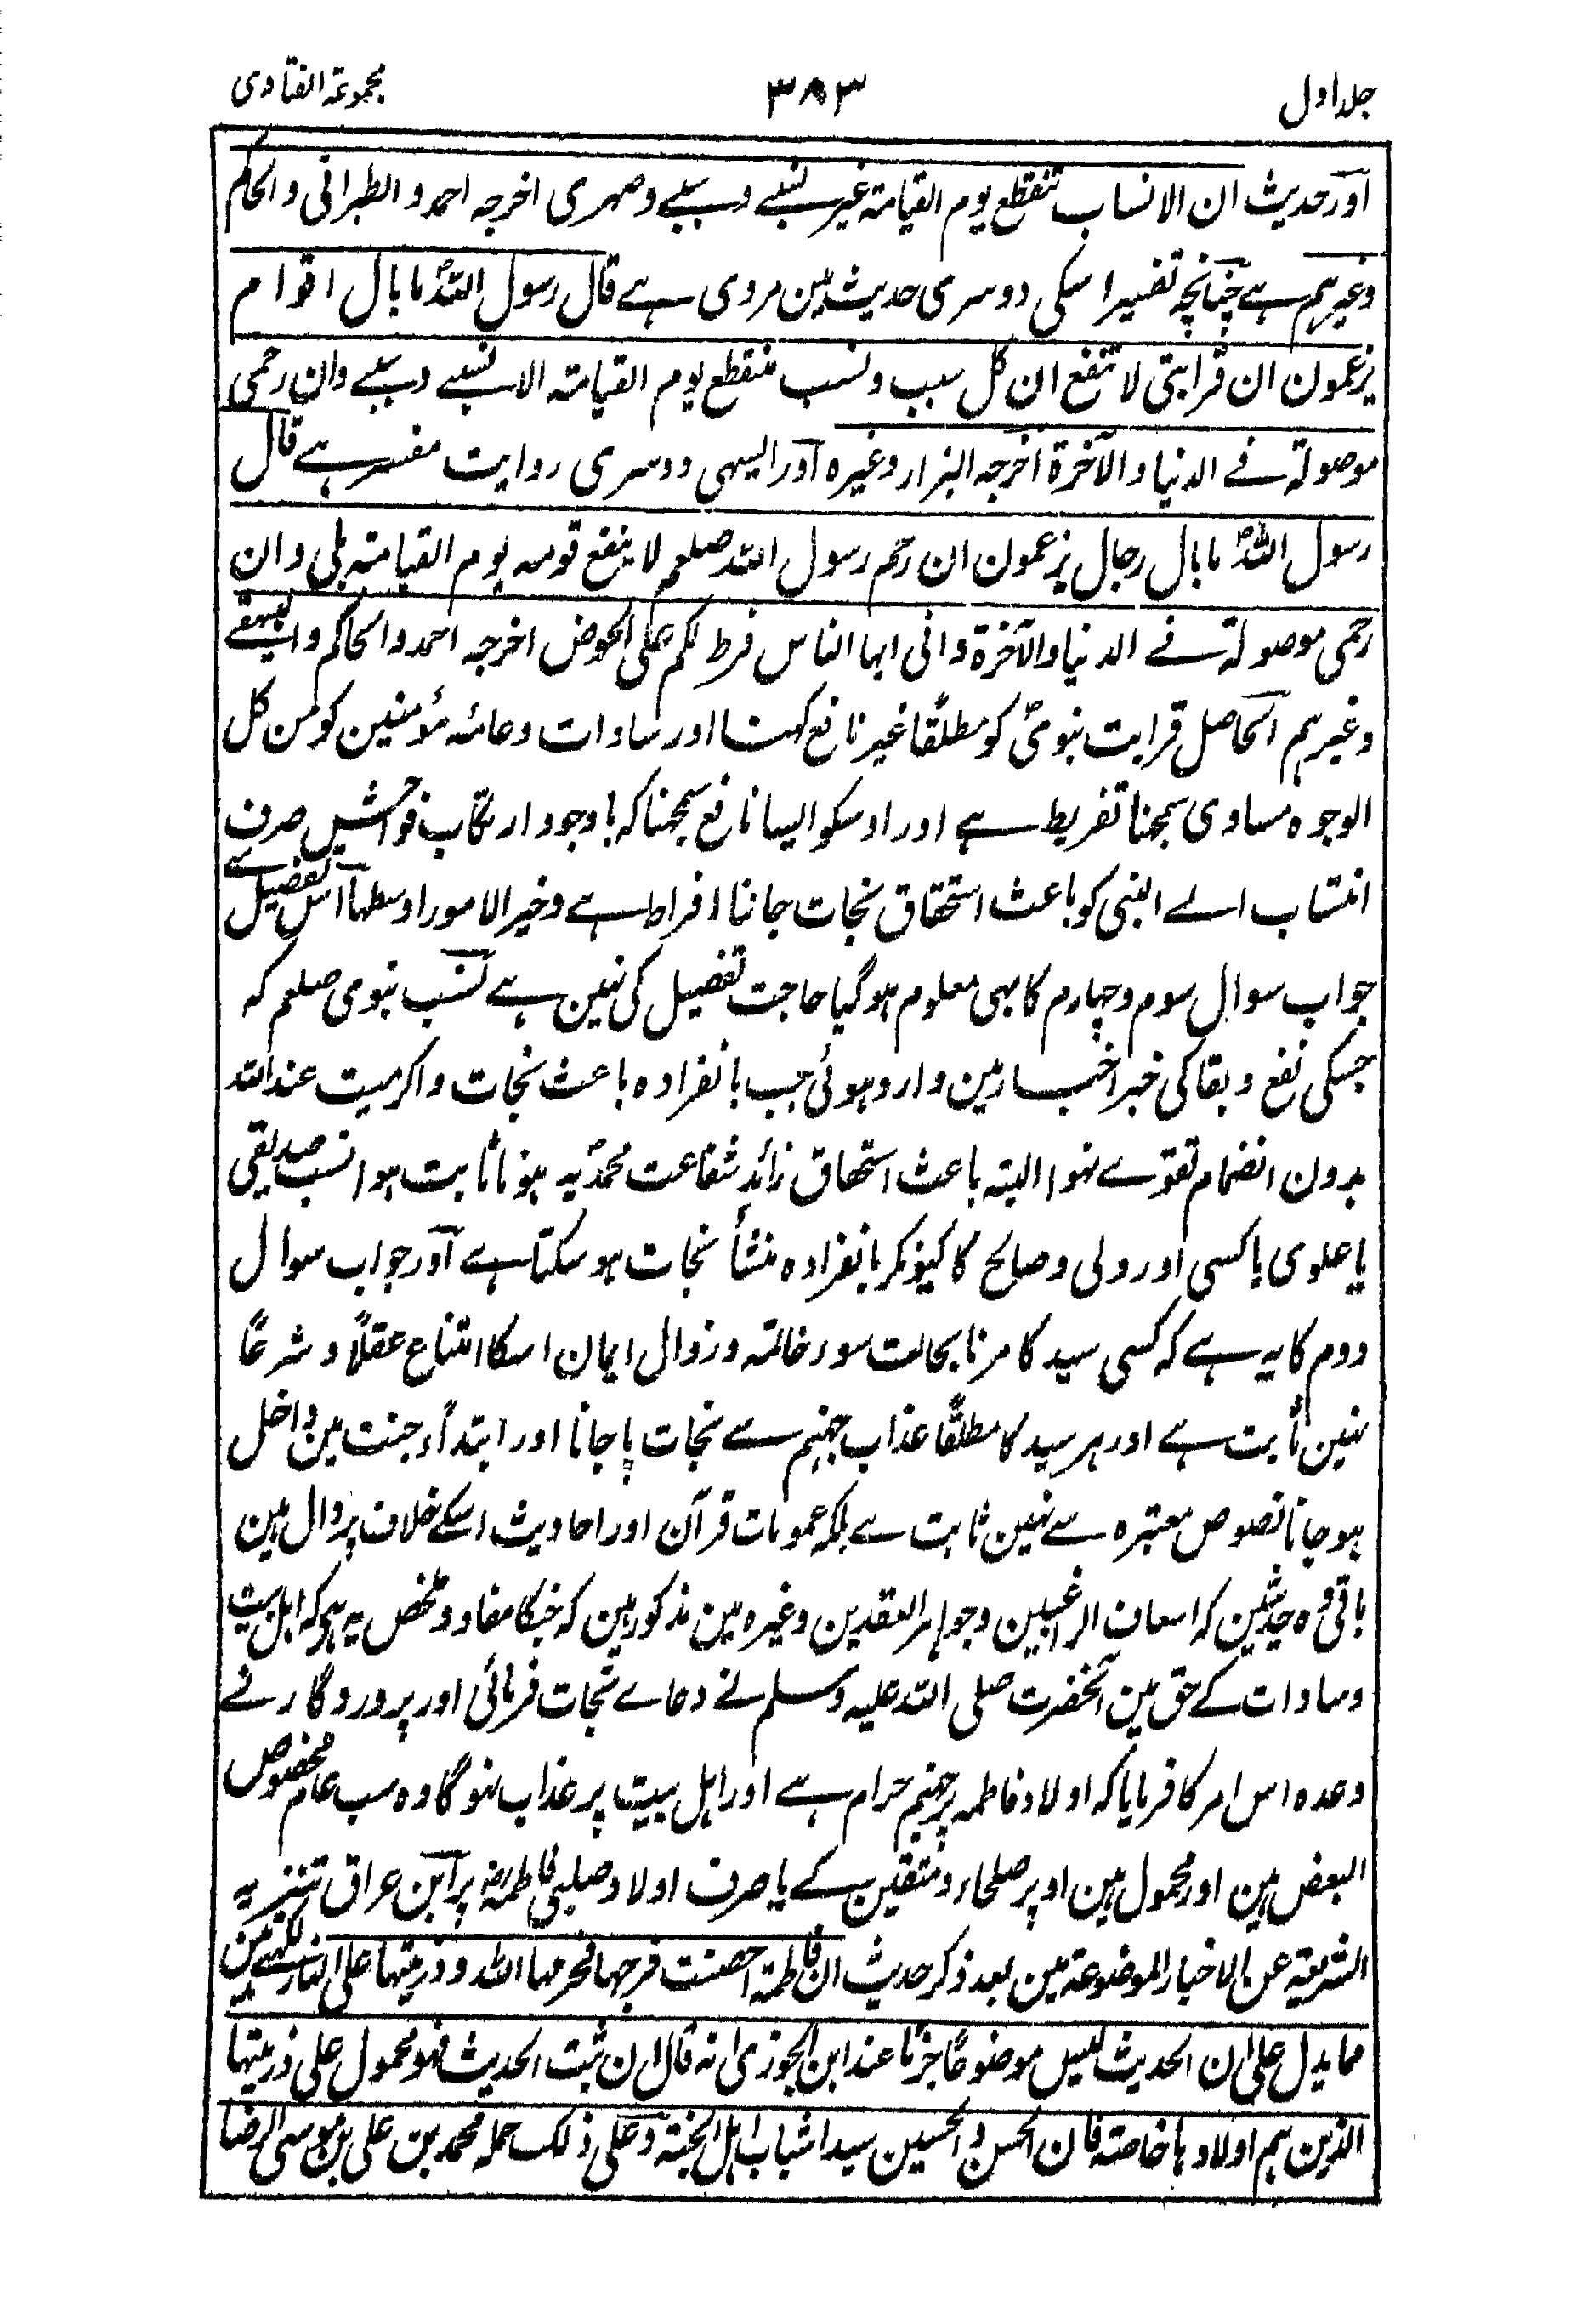 جلد اول ۳۸۳ مجموعۃ الفتاوی
اور حدیث ان الانساب تنقطع یوم القیامۃ غیر نسبے و سببے و صہری اخرجہ احمد و الطبرانی و الحاکم
وغیرہم ہے چنانچہ تفسیر اسکی دوسری حدیث مین مروی ہے قال رسول اللہؐ ما بال اقوام
یزعمون ان قرابتی لا تنفع ان کل سبب و نسب منقطع یوم القیامۃ الا نسبے و سببے وان رحمی
موصولۃ فے الدنیا و الآخرۃ اخرجہ البزار وغیرہ اور ایسہی دوسری روایت مفسر ہے قال
رسول اللہؐ ما بال رجال یزعمون ان رحم رسول اللہ صلعم لا ینفع قومہ یوم القیامۃ بلی و ان
رحمی موصولۃ فے الدنیا والآخرۃ وانی ایہا الناس فرط لکم علی الحوض اخرجہ احمد والحاکم والبیہقے
وغیرہم الحاصل قرابت نبویؐ کو مطلقًا غیر نافع کہنا اور سادات و عامۂ مؤمنین کو من کل
الوجوہ مساوی سمجنا تفریط ہے اور اوسکو ایسا نافع سمجہنا کہ باوجود ارتکاب فواحش صرف
انتساب الے النبی کو باعث استحقاق نجات جاننا افراط ہے وخیر الامور اوسطہا اس تفضیل سے
جواب سوال سوم و چہارم کا بہی معلوم ہوگیا حاجت تفصیل کی نہین ہے نسب نبوی صلعم کہ
جسکی نفع و بقا کی خبر اخبار مین وارد ہوئی جب بانفرادہ باعث نجات و اکرمیت عند اللہ
بدون انضمام تقوے نہوا البتہ باعث استحقاق زائد شفاعت محمدیہ ہونا ثابت ہوا نسب صدیقی
یا علوی یا کسی اور ولی و صالح کا کیونکر بانفرادہ منشأ نجات ہوسکتا ہے اور جواب سوال
دوم کا یہ ہے کہ کسی سید کا مرنا بحالت سوء خاتمہ و زوال ایمان اسکا امتناع عقلًا و شرعًا
نہین ثابت ہے اور ہر سید کا مطلقًا عذاب جہنم سے نجات پا جانا اور ابتداًء جنت مین داخل
ہوجانا نصوص معتبرہ سے نہین ثابت ہے بلکہ عمومات قرآن اور احادیث اسکے خلاف پر دال ہین
باقی وہ حدیثین کہ اسعاف الراغبین وجواہر العقدین وغیرہ مین مذکور ہین کہ جنکا مفاد و ملخص یہ ہی کہ اہل بیت
وسادات کے حق مین آنحضرت صلی اللہ علیہ وسلم نے دعاے نجات فرمائی اور پروردگار نے
وعدہ اس امر کا فرمایا کہ اولاد فاطمہ پر جہنم حرام ہے اور اہل بیت پر عذاب نہوگا وہ سب عام مخصوص
البعض ہین اور محمول ہین اوپر صلحاء و متقین کے یا صرف اولاد صلبی فاطمہ رضؓ پر ابن عراق تنزیہ
الشریعۃ عن الاخبار الموضوعۃ مین بعد ذکر حدیث ان فاطمۃ احصنت فرجہا فحرمہا اللہ و ذریتہا علی النار لکہتے ہین
مما یدل علی ان الحدیث لیس موضوعًا جزمًا عند ابن الجوزی انہ قال ان ثبت الحدیث فہو محمول علی ذریتہا
الذین ہم اولادہا خاصۃ فان الحسن والحسین سیدا شباب اہل الجنۃ و علی ذلک حملہ محمد بن علی بن موسی الرضا